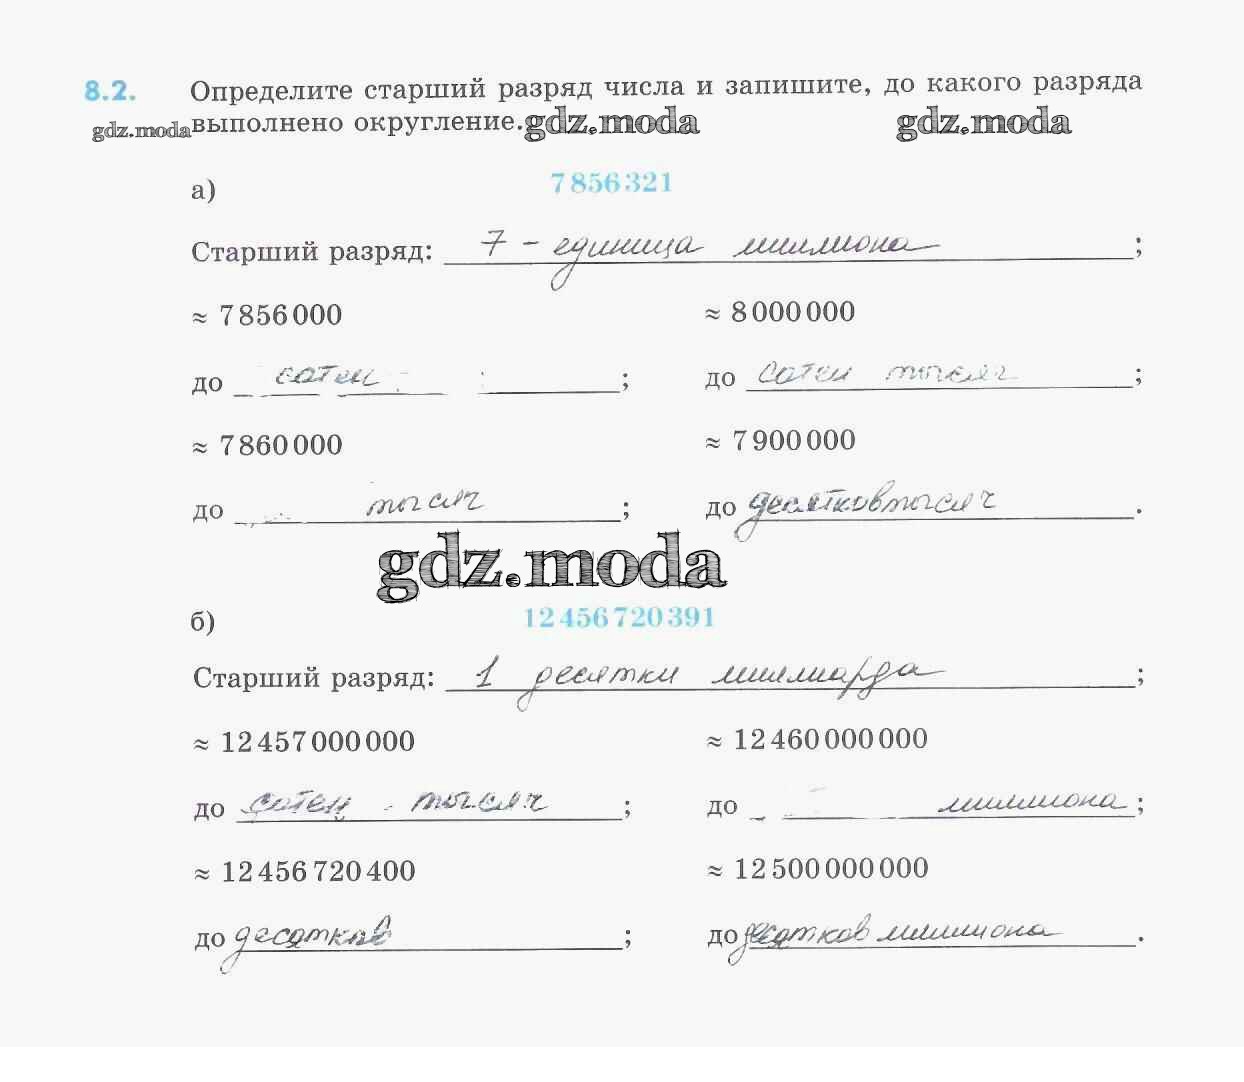 8.2. Определите старший разряд числа и запишите, до какого разряда
gdz.moda выполнено округление. gdz.moda gdz.moda
а) 7 856 321
Старший разряд: 7 - единица миллиона ;
≈ 7 856 000 ≈ 8 000 000
до сотен ; до сотен тысяч ;
≈ 7 860 000 ≈ 7 900 000
до тысяч ; до десятков тысяч .
gdz.moda
б) 12 456 720 391
Старший разряд: 1 десятки миллиарда ;
≈ 12 457 000 000 ≈ 12 460 000 000
до сотен тысяч ; до миллиона ;
≈ 12 456 720 400 ≈ 12 500 000 000
до десятков ; до десятков миллиона .